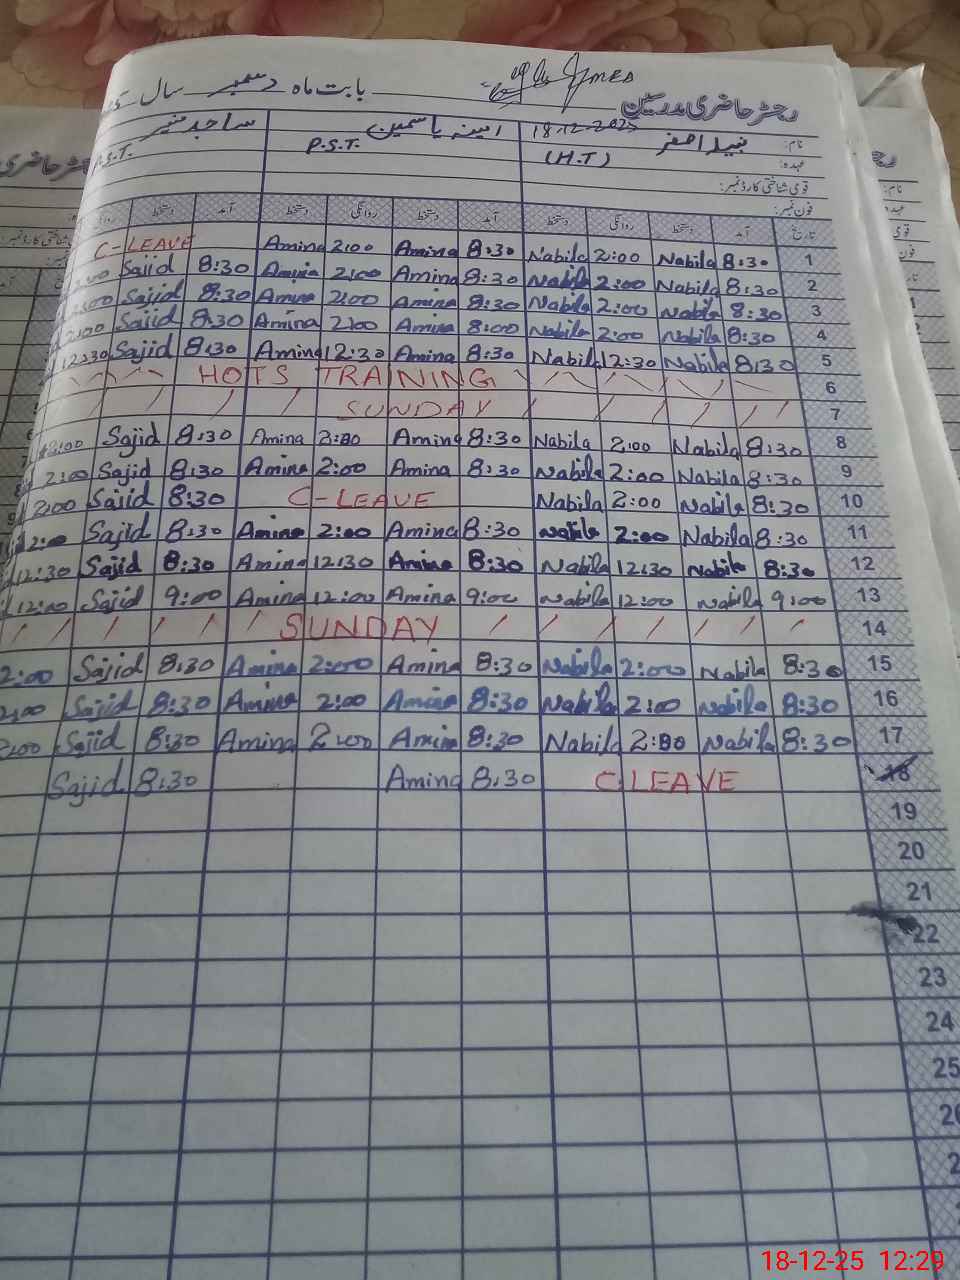 رجسٹر حاضری مدرسین بابت ماہ دسمبر سال
18.12.2025
نام: نبیلہ اصغر امینہ یاسمین ساجد منیر
عہدہ: (H.T) P.S.T. S.T.
قومی شناختی کارڈ نمبر:
فون نمبر:
تاریخ آمد دستخط روانگی دستخط آمد دستخط روانگی دستخط آمد دستخط
C-LEAVE Amina 2:00 Amina 8:30 Nabila 2:00 Nabila 8:30 1
Sajid 8:30 Amina 2:00 Amina 8:30 Nabila 2:00 Nabila 8:30 2
Sajid 8:30 Amina 2:00 Amina 8:30 Nabila 2:00 Nabila 8:30 3
2:00 Sajid 8:30 Amina 2:00 Amina 8:00 Nabila 2:00 Nabila 8:30 4
12:30 Sajid 8:30 Amina 12:30 Amina 8:30 Nabila 12:30 Nabila 8:30 5
HOTS TRAINING 6
SUNDAY 7
2:00 Sajid 8:30 Amina 2:00 Amina 8:30 Nabila 2:00 Nabila 8:30 8
2:00 Sajid 8:30 Amina 2:00 Amina 8:30 Nabila 2:00 Nabila 8:30 9
2:00 Sajid 8:30 C-LEAVE Nabila 2:00 Nabila 8:30 10
2:00 Sajid 8:30 Amina 2:00 Amina 8:30 Nabila 2:00 Nabila 8:30 11
12:30 Sajid 8:30 Amina 12:30 Amina 8:30 Nabila 12:30 Nabila 8:30 12
12:00 Sajid 9:00 Amina 12:00 Amina 9:00 Nabila 12:00 Nabila 9:00 13
SUNDAY 14
2:00 Sajid 8:30 Amina 2:00 Amina 8:30 Nabila 2:00 Nabila 8:30 15
2:00 Sajid 8:30 Amina 2:00 Amina 8:30 Nabila 2:00 Nabila 8:30 16
2:00 Sajid 8:30 Amina 2:00 Amina 8:30 Nabila 2:00 Nabila 8:30 17
Sajid 8:30 Amina 8:30 C-LEAVE 18
19
20
21
22
23
24
25
18-12-25 12:29